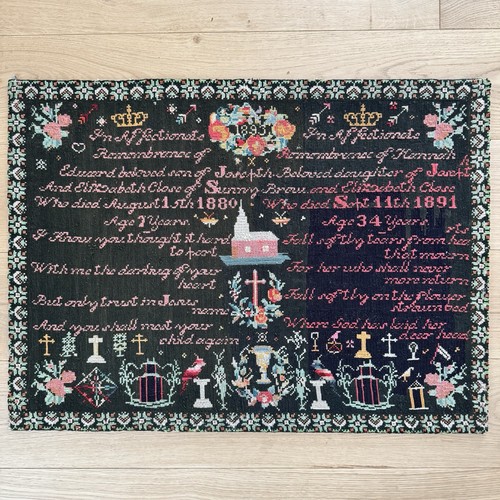 1893
In Affectionate
Remembrance of
Edward beloved son of Joseph
And Elizabeth Close of Sunny Brow
Who died August 15th 1880
Age 7 Years
I Know you thought it hard
to part
With me the darling of your
heart
But only trust in Jesus
name
And you shall meet your
child again
In Affectionate
Remembrance of Hannah
Beloved daughter of Joseph
and Elizabeth Close
Who died Sept 11th 1891
Age 34 Years
Fall softly tears from hearts
that mourn
For her who shall never
more return
Fall softly on the flower
strewn bed
Where God has laid her
dear head